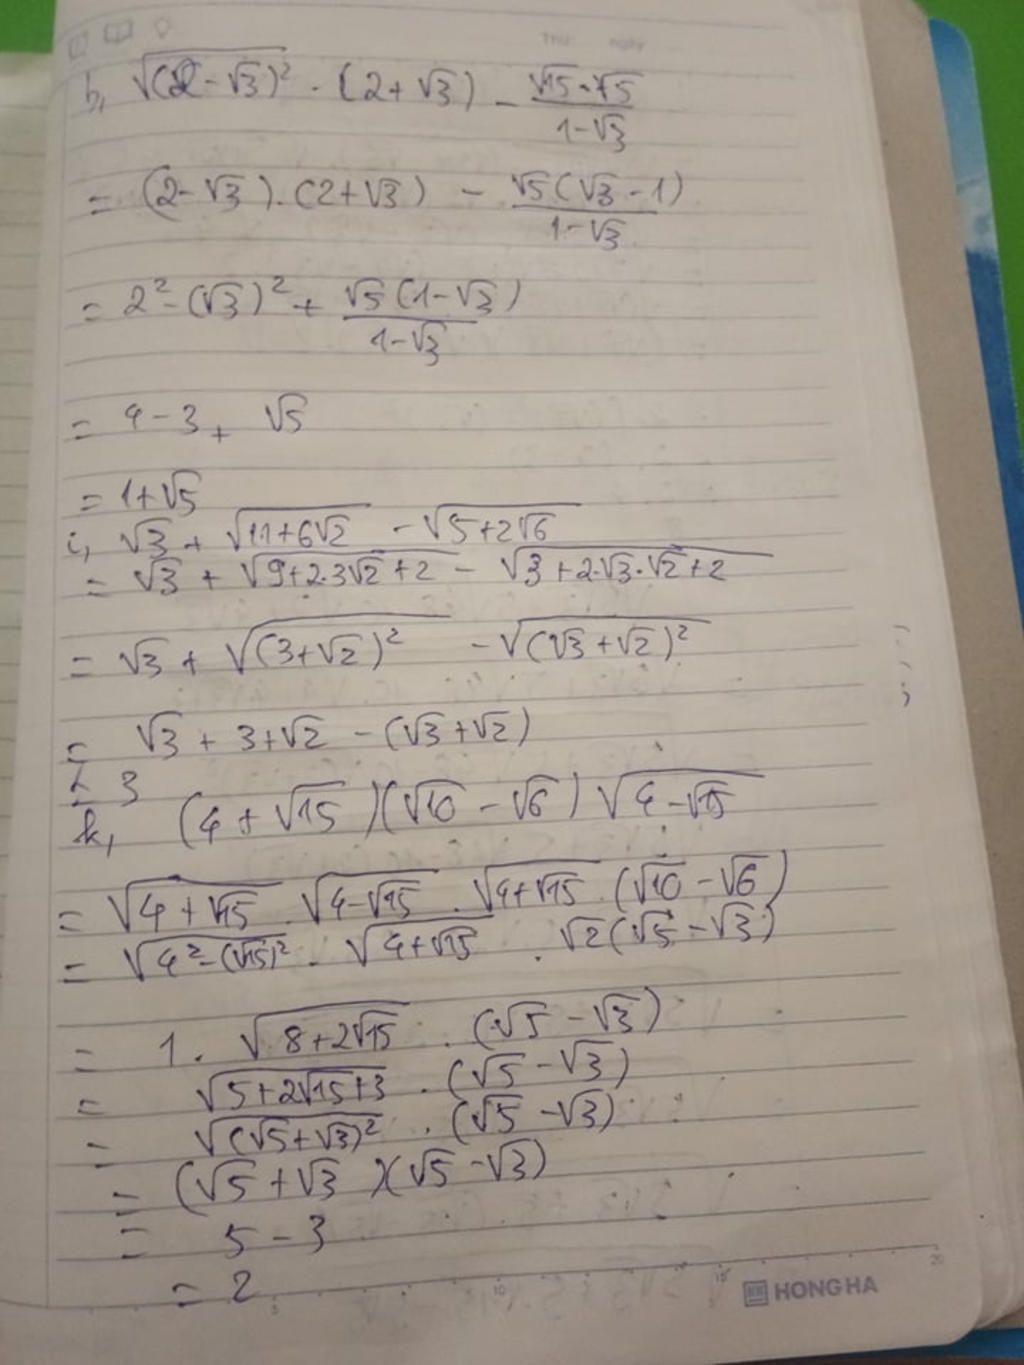 Thứ ngày
h, √(2-√3)² . (2+√3) - (√15-√5)/(1-√3)
= (2-√3).(2+√3) - √5(√3-1)/(1-√3)
= 2²-(√3)² + √5(1-√3)/(1-√3)
= 4-3+ √5
= 1+√5
i, √3 + √(11+6√2) - √(5+2√6)
= √3 + √(9+2.3√2+2) - √(3+2.√3.√2+2)
= √3 + √(3+√2)² - √(√3+√2)²
= √3 + 3+√2 - (√3+√2)
= 3
k, (4+√15)(√10-√6)√(4-√15)
= √(4+√15) . √(4-√15) . √(4+√15) . (√10-√6)
= √(4²-(√15)²) . √(4+√15) . √2(√5-√3)
= 1. √(8+2√15) . (√5-√3)
= √(5+2√15+3) . (√5-√3)
= √(√5+√3)² . (√5-√3)
= (√5+√3)(√5-√3)
= 5-3
= 2
5 10 15 20
HONG HA